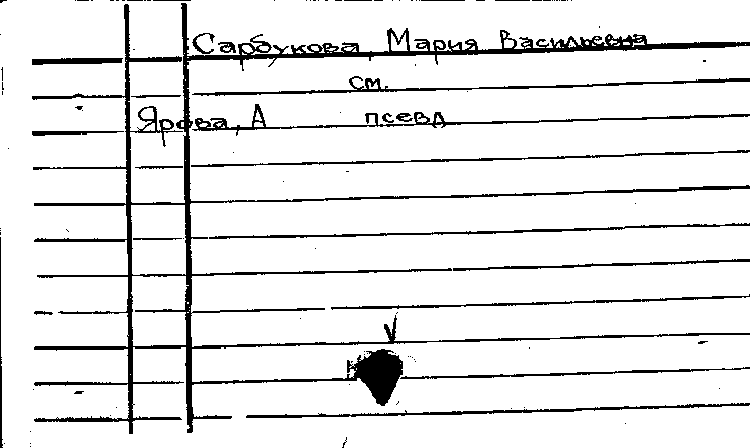 Сарбукова, Мария Васильевна
см.
Ярова, А псевд